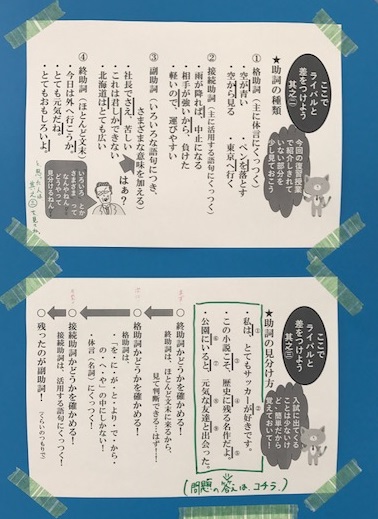 ここで
ライバルと
差をつけよう
其之二
今回の復習授業
で紹介しきれて
いない部分を
少し見ておこう
★助詞の種類
① 格助詞(主に体言にくっつく)
・空が青い ・ペンを落とす
・空から見る ・東京へ行く
② 接続助詞(主に活用する語句にくっつく)
・雨が降れば、中止になる
・相手が強いから、負けた
・軽いので、運びやすい
③ 副助詞(いろいろな語句につき、
さまざまな意味を加える)
・社長でさえ、苦しい
・これは君しかできない
・北海道はとても広い
はぁ?
いろいろ とか
さまざま って
なんやねん!
どうやって
見分けるねん!
④ 終助詞(ほとんど文末)
・今日は外へ行こうか。
・とても元気だね。
・とてもおもしろいよ。
ここで
ライバルと
差をつけよう
其之三
入試に出てくる
ことは少ないけ
ど、簡単だから
覚えておいて!
★助詞の見分け方
・私は、とてもサッカーが好きです。
・この小説こそ、歴史に残る名作だよ。
・公園にいると、元気な友達と出会った。
(問題の答えは、コチラ。)
○終助詞かどうかを確かめる!
終助詞は、ほとんど文末に来るから、
見て判断できる…はず…!
○格助詞かどうかを確かめる!
格助詞は、
・「を・に・が・と・より・で・から・
の・へ・や」の中にしかない!
・体言(名詞)にくっつく!
○接続助詞かどうかを確かめる!
接続助詞は、活用する語句にくっつく!
○残ったのが副助詞